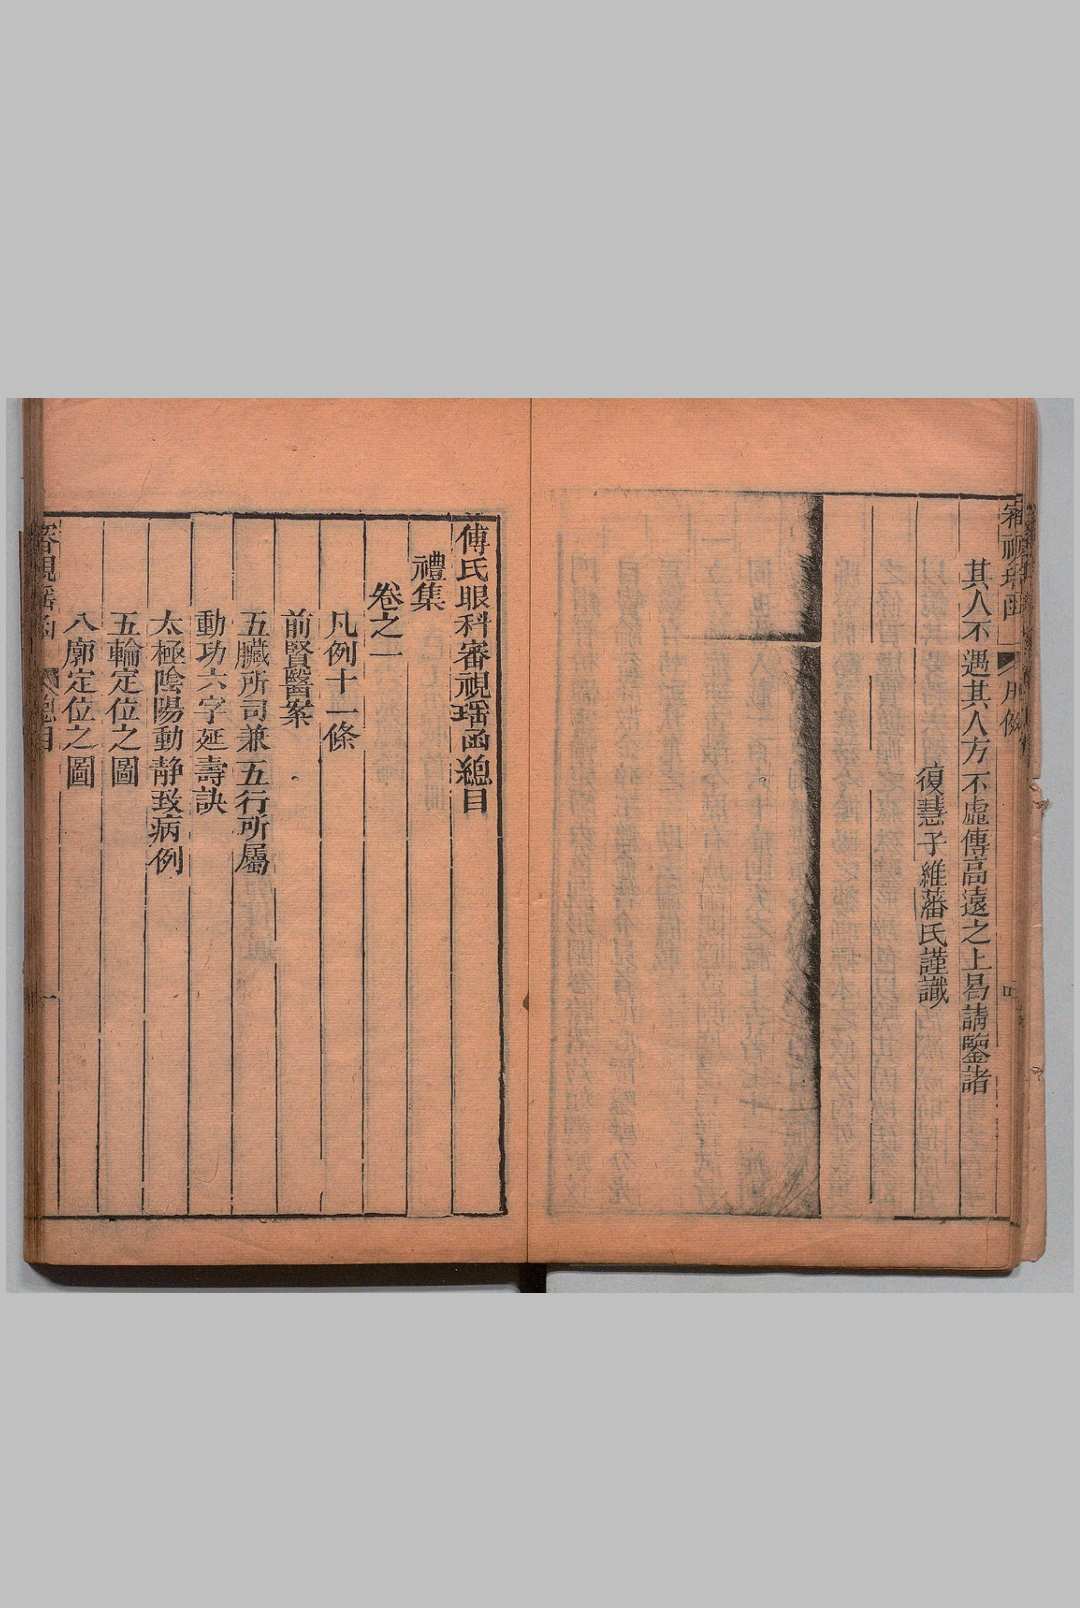 其人不遇其人方不虛傳高遠之上曷請鑒諸
復慧子維藩氏謹識
傅氏眼科審視瑶函總目
禮集
卷之一
凡例十一條
前賢醫案
五臟所司兼五行所屬
動功六字延壽訣
太極陰陽動静致病例
五輪定位之圖
八廓定位之圖
審視瑶函 總目 一